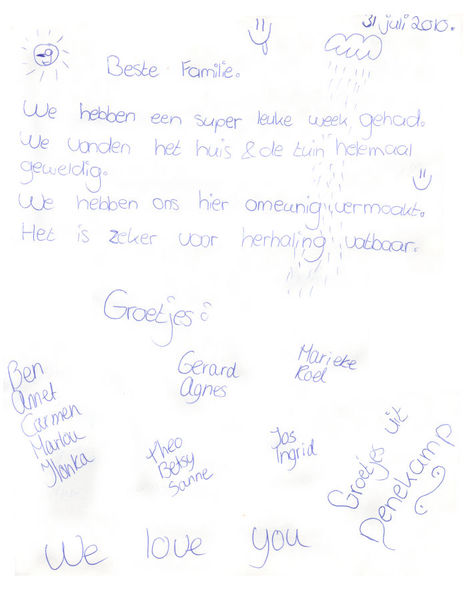 31 juli 2010.
Beste Familie.
We hebben een super leuke week gehad.
We vonden het huis & de tuin helemaal
geweldig.
We hebben ons hier omeunig vermaakt.
Het is zeker voor herhaling vatbaar.
Groetjes:
Ben
Annet
Carmen
Marlou
Ilonka
Gerard
Agnes
Marieke
Roel
Theo
Betsy
Sanne
Jos
Ingrid
Groetjes uit
Denekamp
We love you